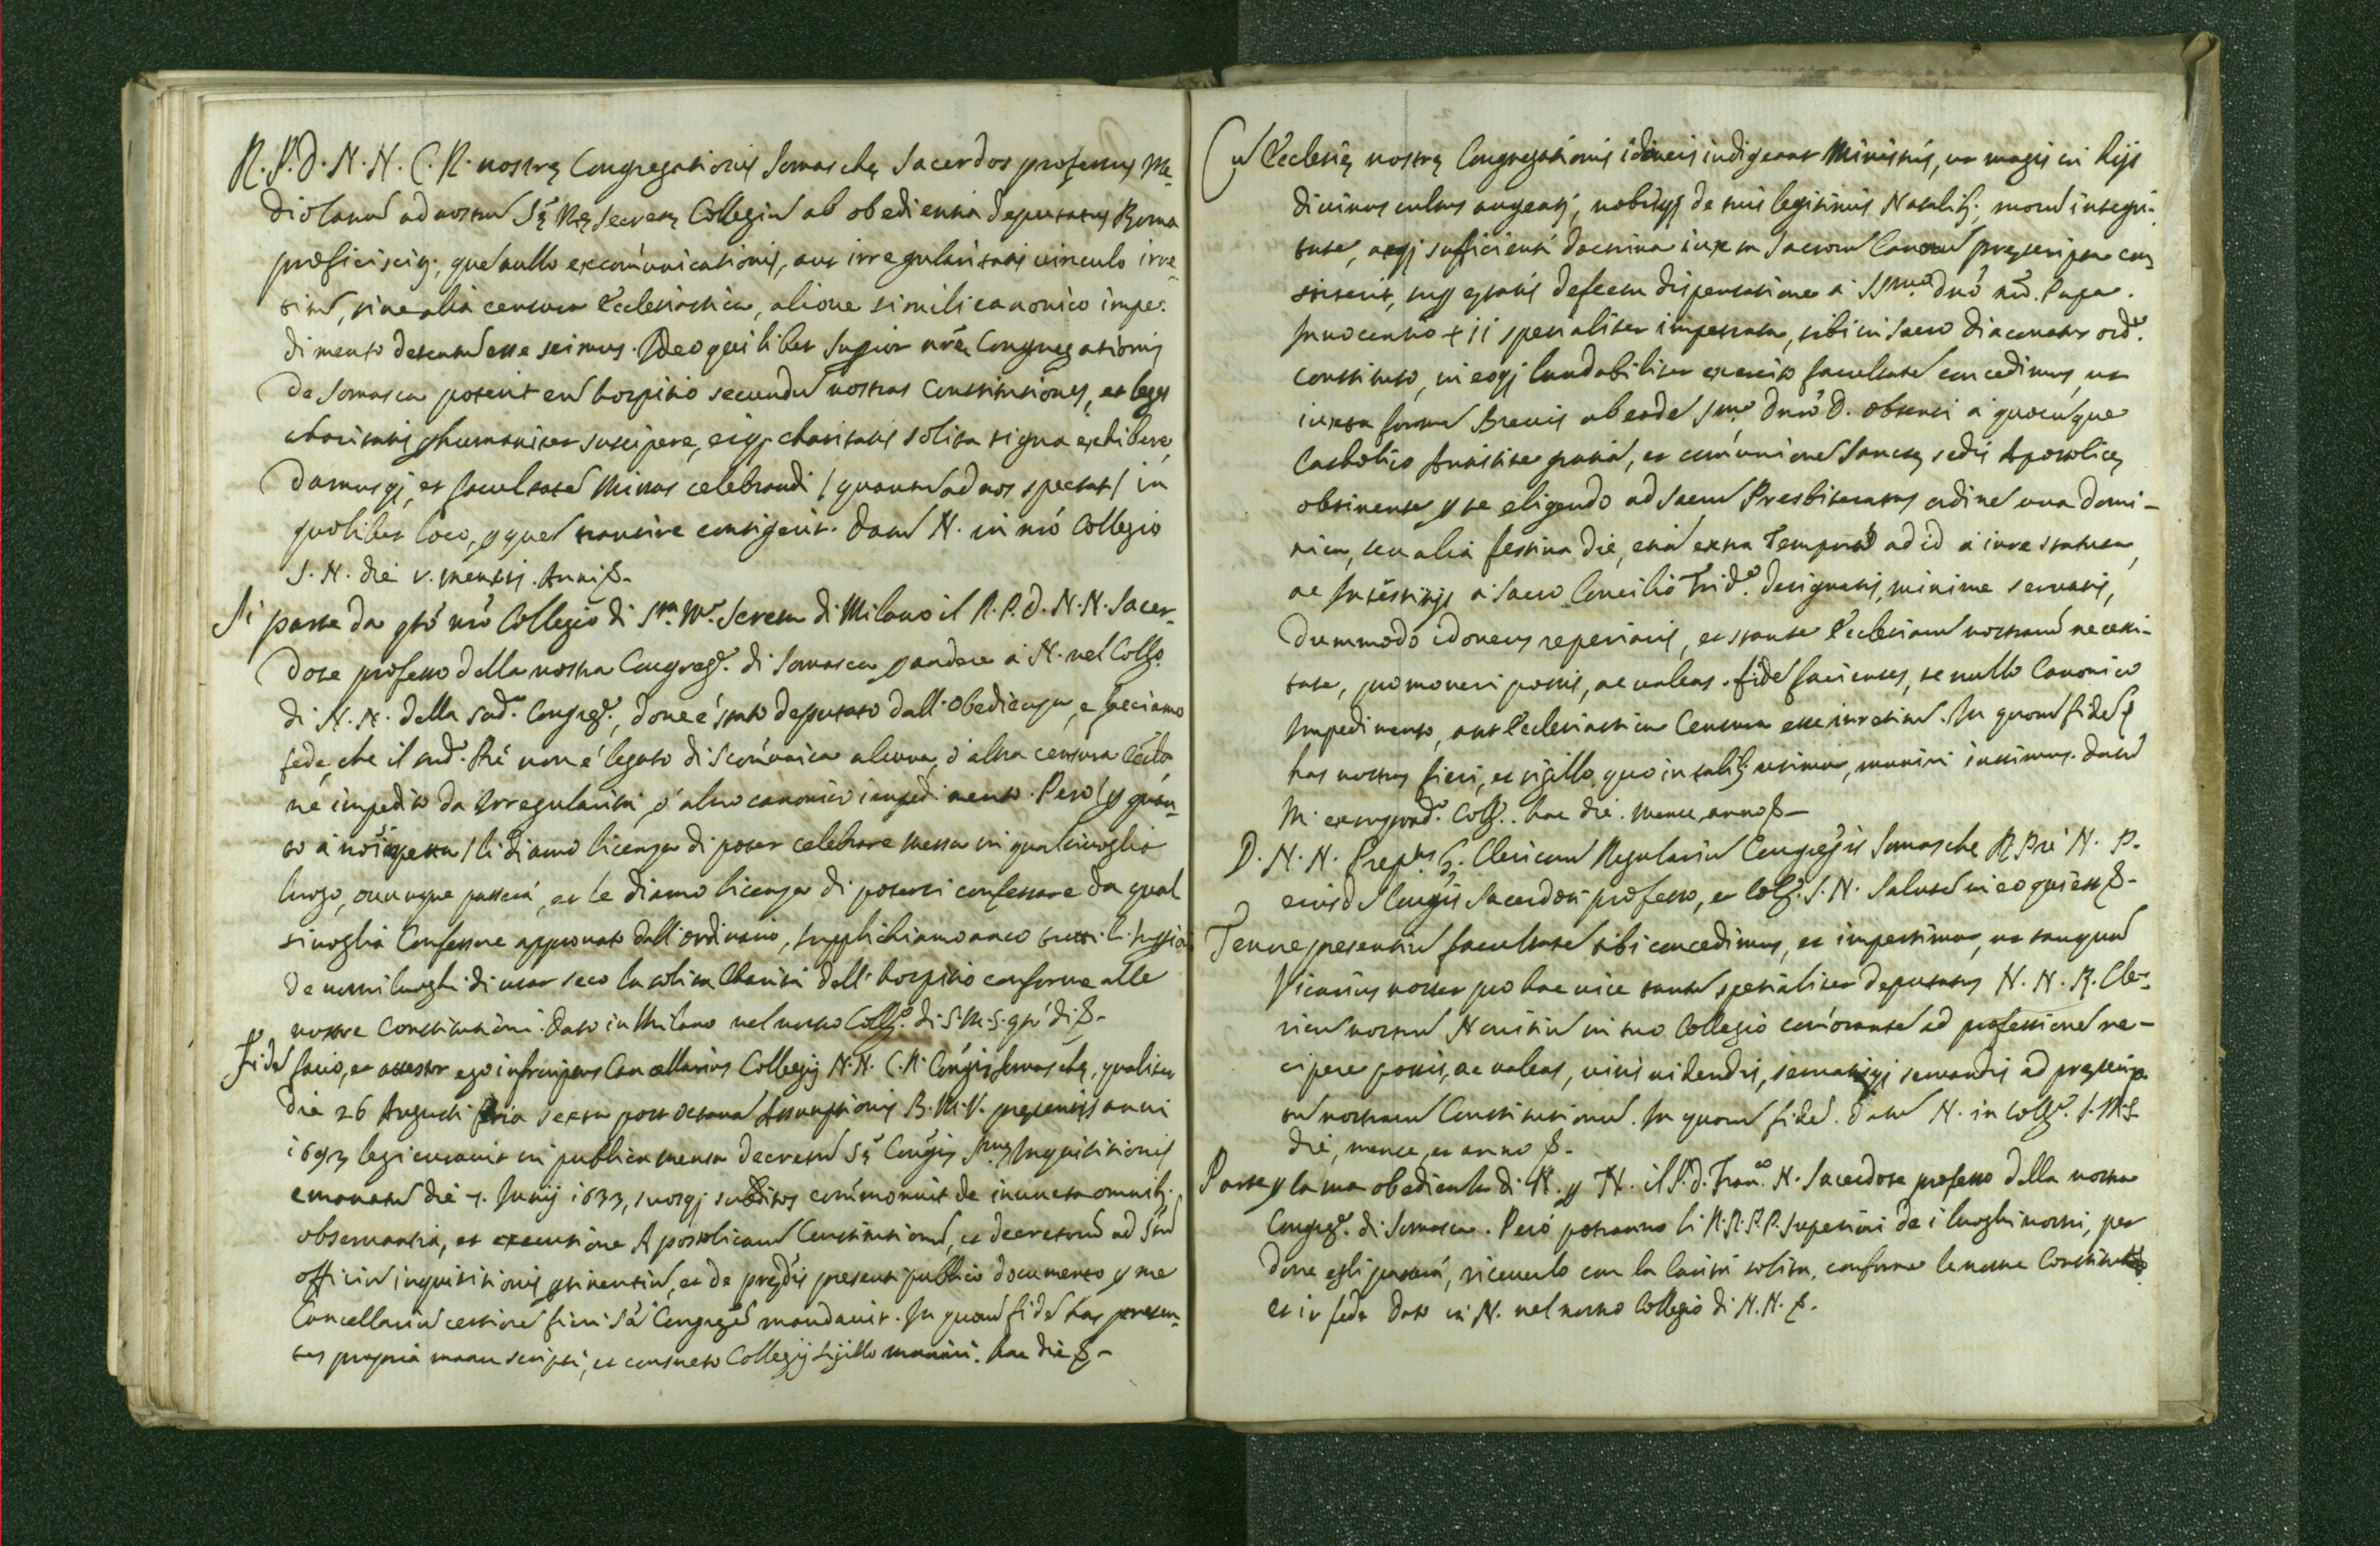 R. P. D. N. N. C. R. nostrę Congregationis Somaschę Sacerdos professus Me-
diolanũ ad nostrũ Sę Mę Secretę Collegiũ ab obedientia deputatus Roma
proficiscit; quẽ nullo excõmunicationis, aut irregularitatis vinculo irre-
titũ, sive alia censura Ecclesiastica, aliove simili canonico impe-
dimento detentũ esse scimus. Ideo quilibet Supior nrę Congregationis
de Somasca poterit eũ hospitio secundũ nostras Constitutiones, et leges
charitatis phumaniter suscipere, eiq; charitatis solita signa exhibere,
Damusq; et facultatẽ Missas celebrandi / quantũ ad nos spectat / in
quolibet loco, p quẽ transire contigerit. Datũ N. in nro Collegio
S. N. die v. mensis. Anni &.
Si parte da qsto nro Collegio di Sta. Ma. Secreta di Milano il R. P. D. N. N. Sacer-
dote professo della nostra Congregne. di Somasca p andare à N. nel Collo.
di N. N. della sudta. Congregne., dove è stato deputato dall'obedienza, e facciamo
fede, che il sudto. Pre non è legato di Scõmunica alcuna, ò altra censura Eccla,
ne impedito da irregularità, ò altro canonico impedimento. Però / p quan-
to à noi spetta / li diamo licenza di poter celebrare Messa in qualsivoglia
luogo, ovunque passerà, et le diamo licenza di potersi confessare da qual
sivoglia Confessore approvato dall'ordinario, supplichiamo anco tutti li Suppiori
de nostri luoghi di usar seco la solita Charità dell'hospitio conforme alle
nostre Constitutioni. Dato in Milano nel nostro Collo. di S. M. S. qsto dì &.
Fidẽ facio, et attestor ego infrascriptus Cancellarius Collegij N. N. C. R. Congis Somaschę, qualiter
die 26 Augusti feria sexta post octavã Assumptionis B. M. V. pręsentis anni
1693 legi curavit in publica mensa Decretũ Sę Congis Smę Inquisitionis
emanatũ die 7. Junij 1633, suosq; subditos cõmmonuit de iniuncta omnib;
observantia, et executione Apostolicarũ Constitutionũ, et decretorũ ad Stũ
officiũ inquisitionis ptinentiũ, et de prędis presenti publico documento p me
Cancellariũ certiorẽ fieri Sã Congregem mandavit. In quorũ fidẽ has presen-
tes propria manu scripsi, et consueto Collegij sigillo munivi. hac die &.
Cũ Ecclesię nostrę Congregationis idoneis indigeant Ministris, ut magis in Dies
divinus cultus augeat;, nobisq; de tuis legitimis Natalib;, morũ integri-
tate, atq; sufficienti doctrina iuxta Sacrorũ Canonũ pręscripta con-
stiterit, supq; ętatis defectu dispensatione à SSmo. Dno nro. Papa.
Innocentio XII specialiter impetrata, tibi in Sacro Diaconatus ordne.
constituto, in eoq; laudabiliter exercito facultatẽ concedimus, ut
iuxta formã Brevis ab eodẽ Smo. Dno D. obtenti à quocũque
Catholico Antistite gratiã, et cõmunionẽ Sanctę sedis Apostolicę
obtinente p te eligendo ad Sacrũ Presbiteratus ordinẽ una Domi-
nica, seu alia festiva die, etiã extra Tempora ad id à iure statuta,
ac Interstitijs à Sacro Concilio Trido. designatis, minime servatis,
dummodo idoneus reperiaris, et stante Ecclesiarũ nostrarũ necessi-
tate, promoveri possis, ac valeas. fidẽ facientes, te nullo Canonico
Impedimento, aut Ecclesiastica Censura esse irretitũ. In quorũ fidẽ &
has nostras fieri, et sigillo, quo in talib; utimur, muniri iussimus. Datũ
M. ex suprado. Collo. hac die. Mense, anno &.
D. N. N. Preptus G. Clericorũ Regulariũ Congregis Somaschę R. Pri N. P.
eiusdẽ Congis Sacerdoti professo, et Collo. S. N. Salutẽ in eo qui est &.
Tenore presentiũ facultatẽ tibi concedimus, et impertimur, ut tanquã
Vicarius noster pro hac vice tantũ specialiter deputatus N. N. R. Cle-
ricũ nostrũ Novitiũ in tuo Collegio cõmorantẽ ad professionẽ re-
cipere possis, ac valeas, visis videndis, servatisq; servandis ad pręscrip-
tũ nostrarũ Constitutionũ. In quorũ fidẽ. Datũ N. in Collo. S. M. S.
die, mense, et anno &.
Parte p la sua obedienza di N. p N. il P. D. Franco. N. Sacerdote professo della nostra
Congregne. di Somasca. Però potranno li R. R. P. P. Superiori de i luoghi nostri, per
dove egli passerà, riceverlo con la carità solita, conforme le nostre Constitutni
et in fede Dato in N. nel nostro Collegio di N. N. &.